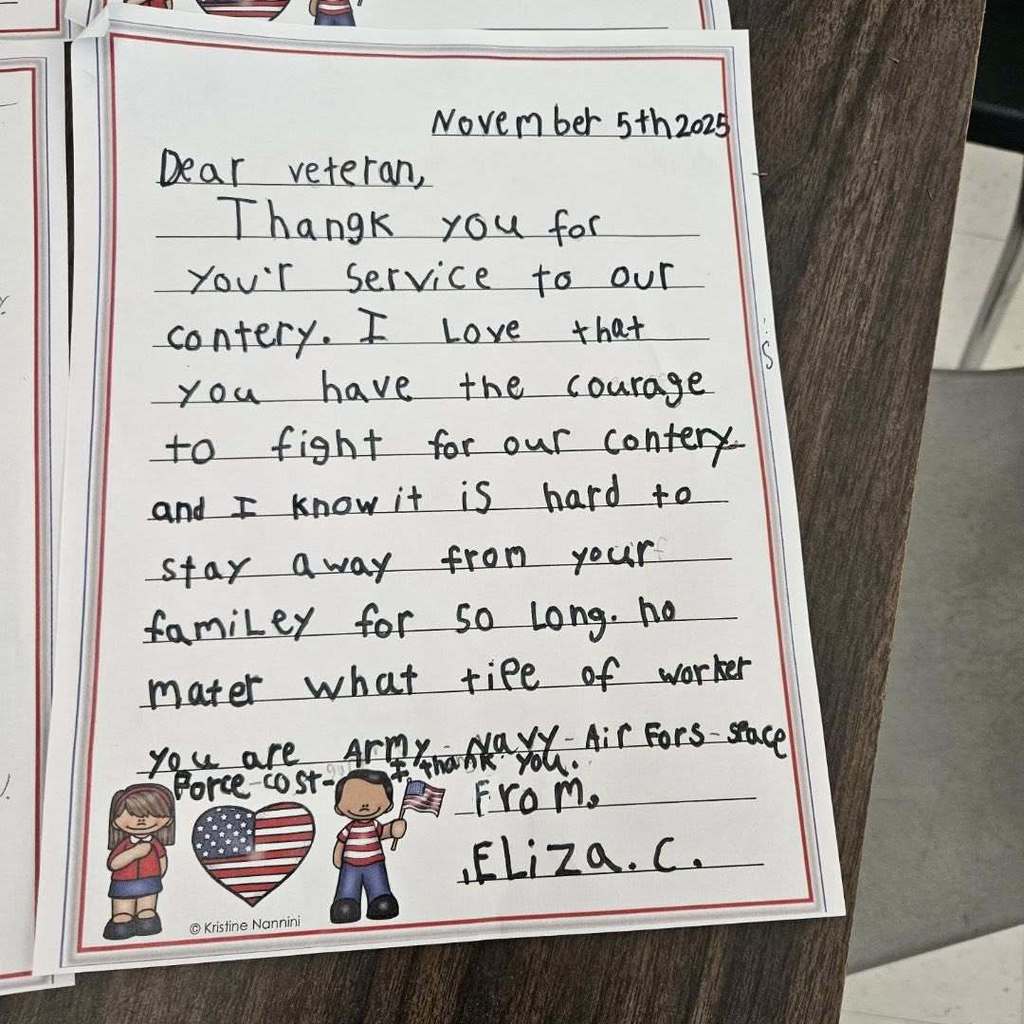 November 5th 2025
Dear veteran,
Thangk you for
you'r service to our
contery. I Love that
you have the courage
to fight for our contery
and I know it is hard to
stay away from your
famiLey for so Long. no
mater what tipe of worker
you are Army-Navy-Air Fors-space
Force-cost-
I thank you.
From,
ELiza. C.
© Kristine Nannini